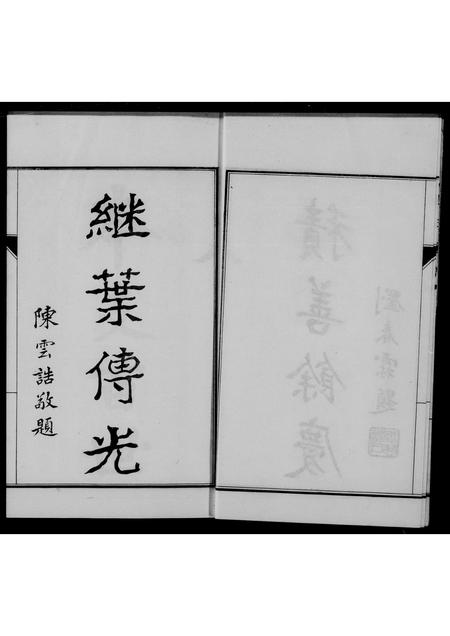 積善餘慶
劉春霖題
継葉傳光
陳雲誥敬題